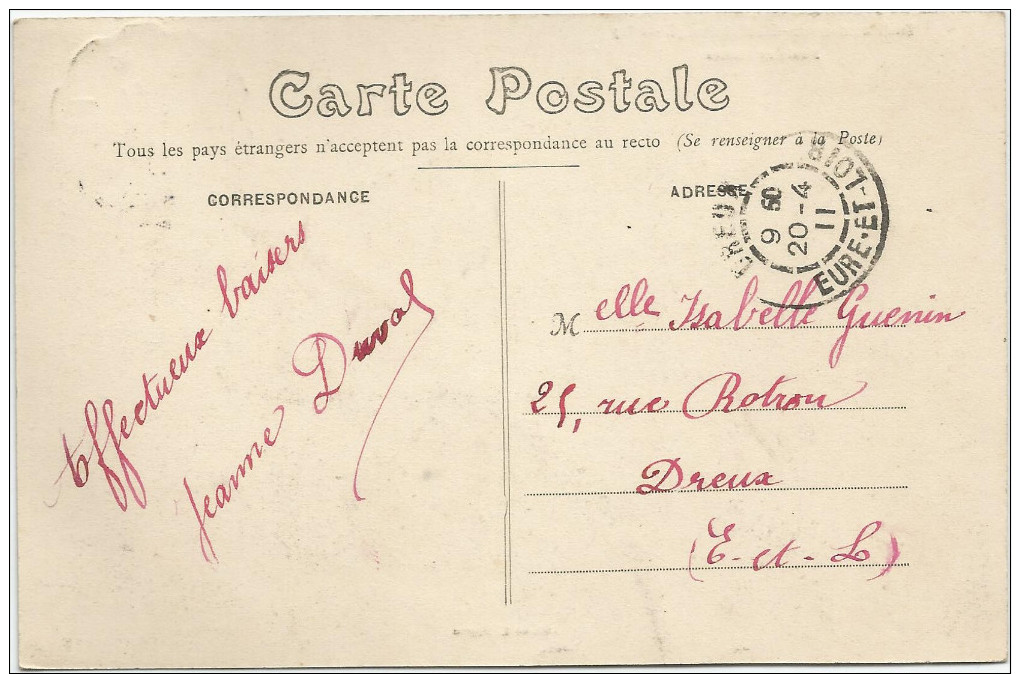 Carte Postale
Tous les pays étrangers n'acceptent pas la correspondance au recto (Se renseigner à la Poste)
CORRESPONDANCE
Effectueux baisers
Jeanne Duval
ADRESSE
DREUX
9 50
20-4
11
EURE-ET-LOIR
Melle Isabelle Guenin
25, rue Rotrou
Dreux
(E-et-L)